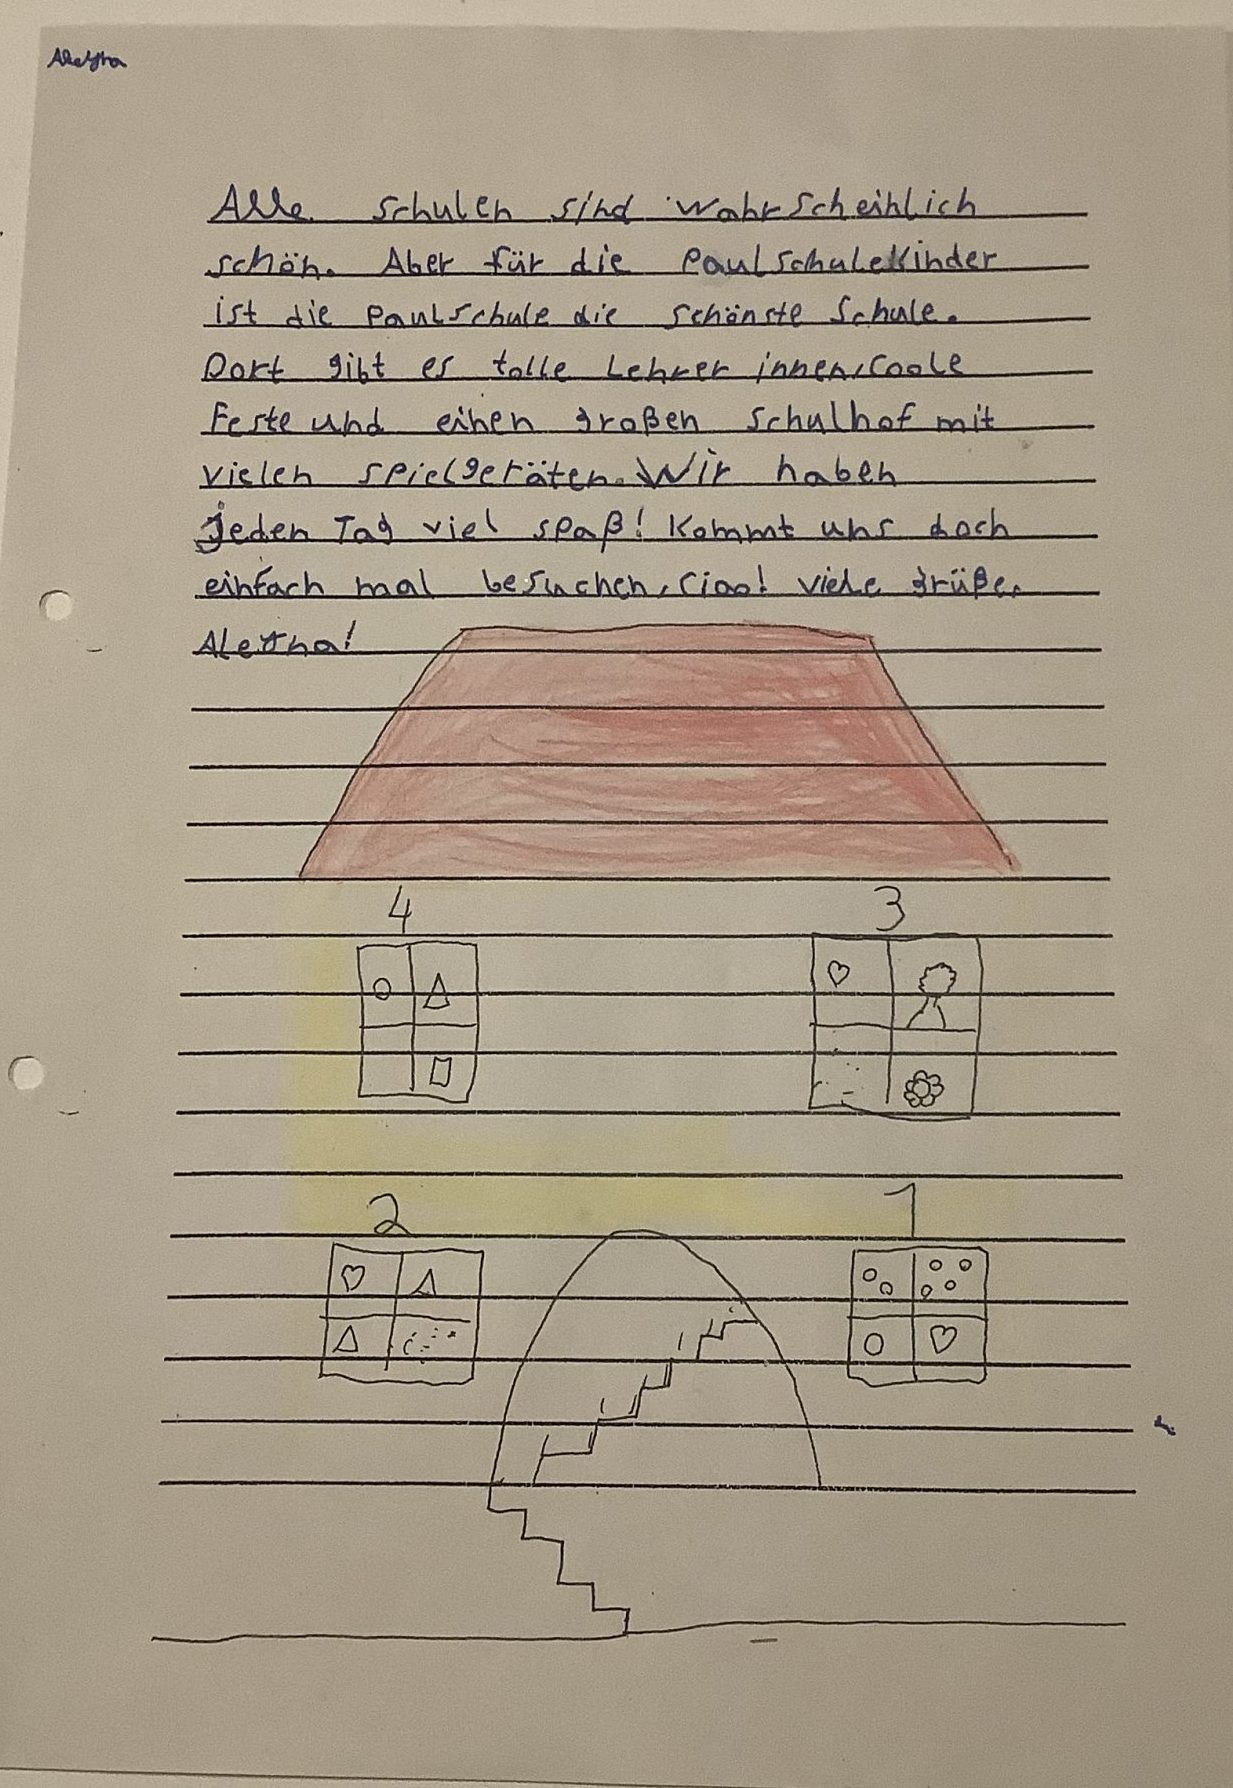 Alle schulen sind wahrscheinlich
schön. Aber für die PaulschuleKinder
ist die Paulschule die schönste Schule.
Dort gibt es tolle Lehrer innen, Coole
Feste und einen großen Schulhof mit
vielen spielgeräten. Wir haben
jeden Tag viel spaß! Kommt uns doch
einfach mal besuchen, ciao! viele grüße.
4
3
2
1